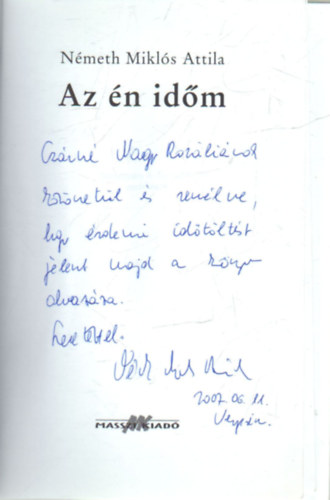 Németh Miklós Attila
Az én időm
Czárné Nagy Rozáliának
és remélve,
hogy érdemi időtöltést
jelent majd a könyv
olvasása.
Szeretettel.
2007. 06. 11.
MASSZI KIADÓ